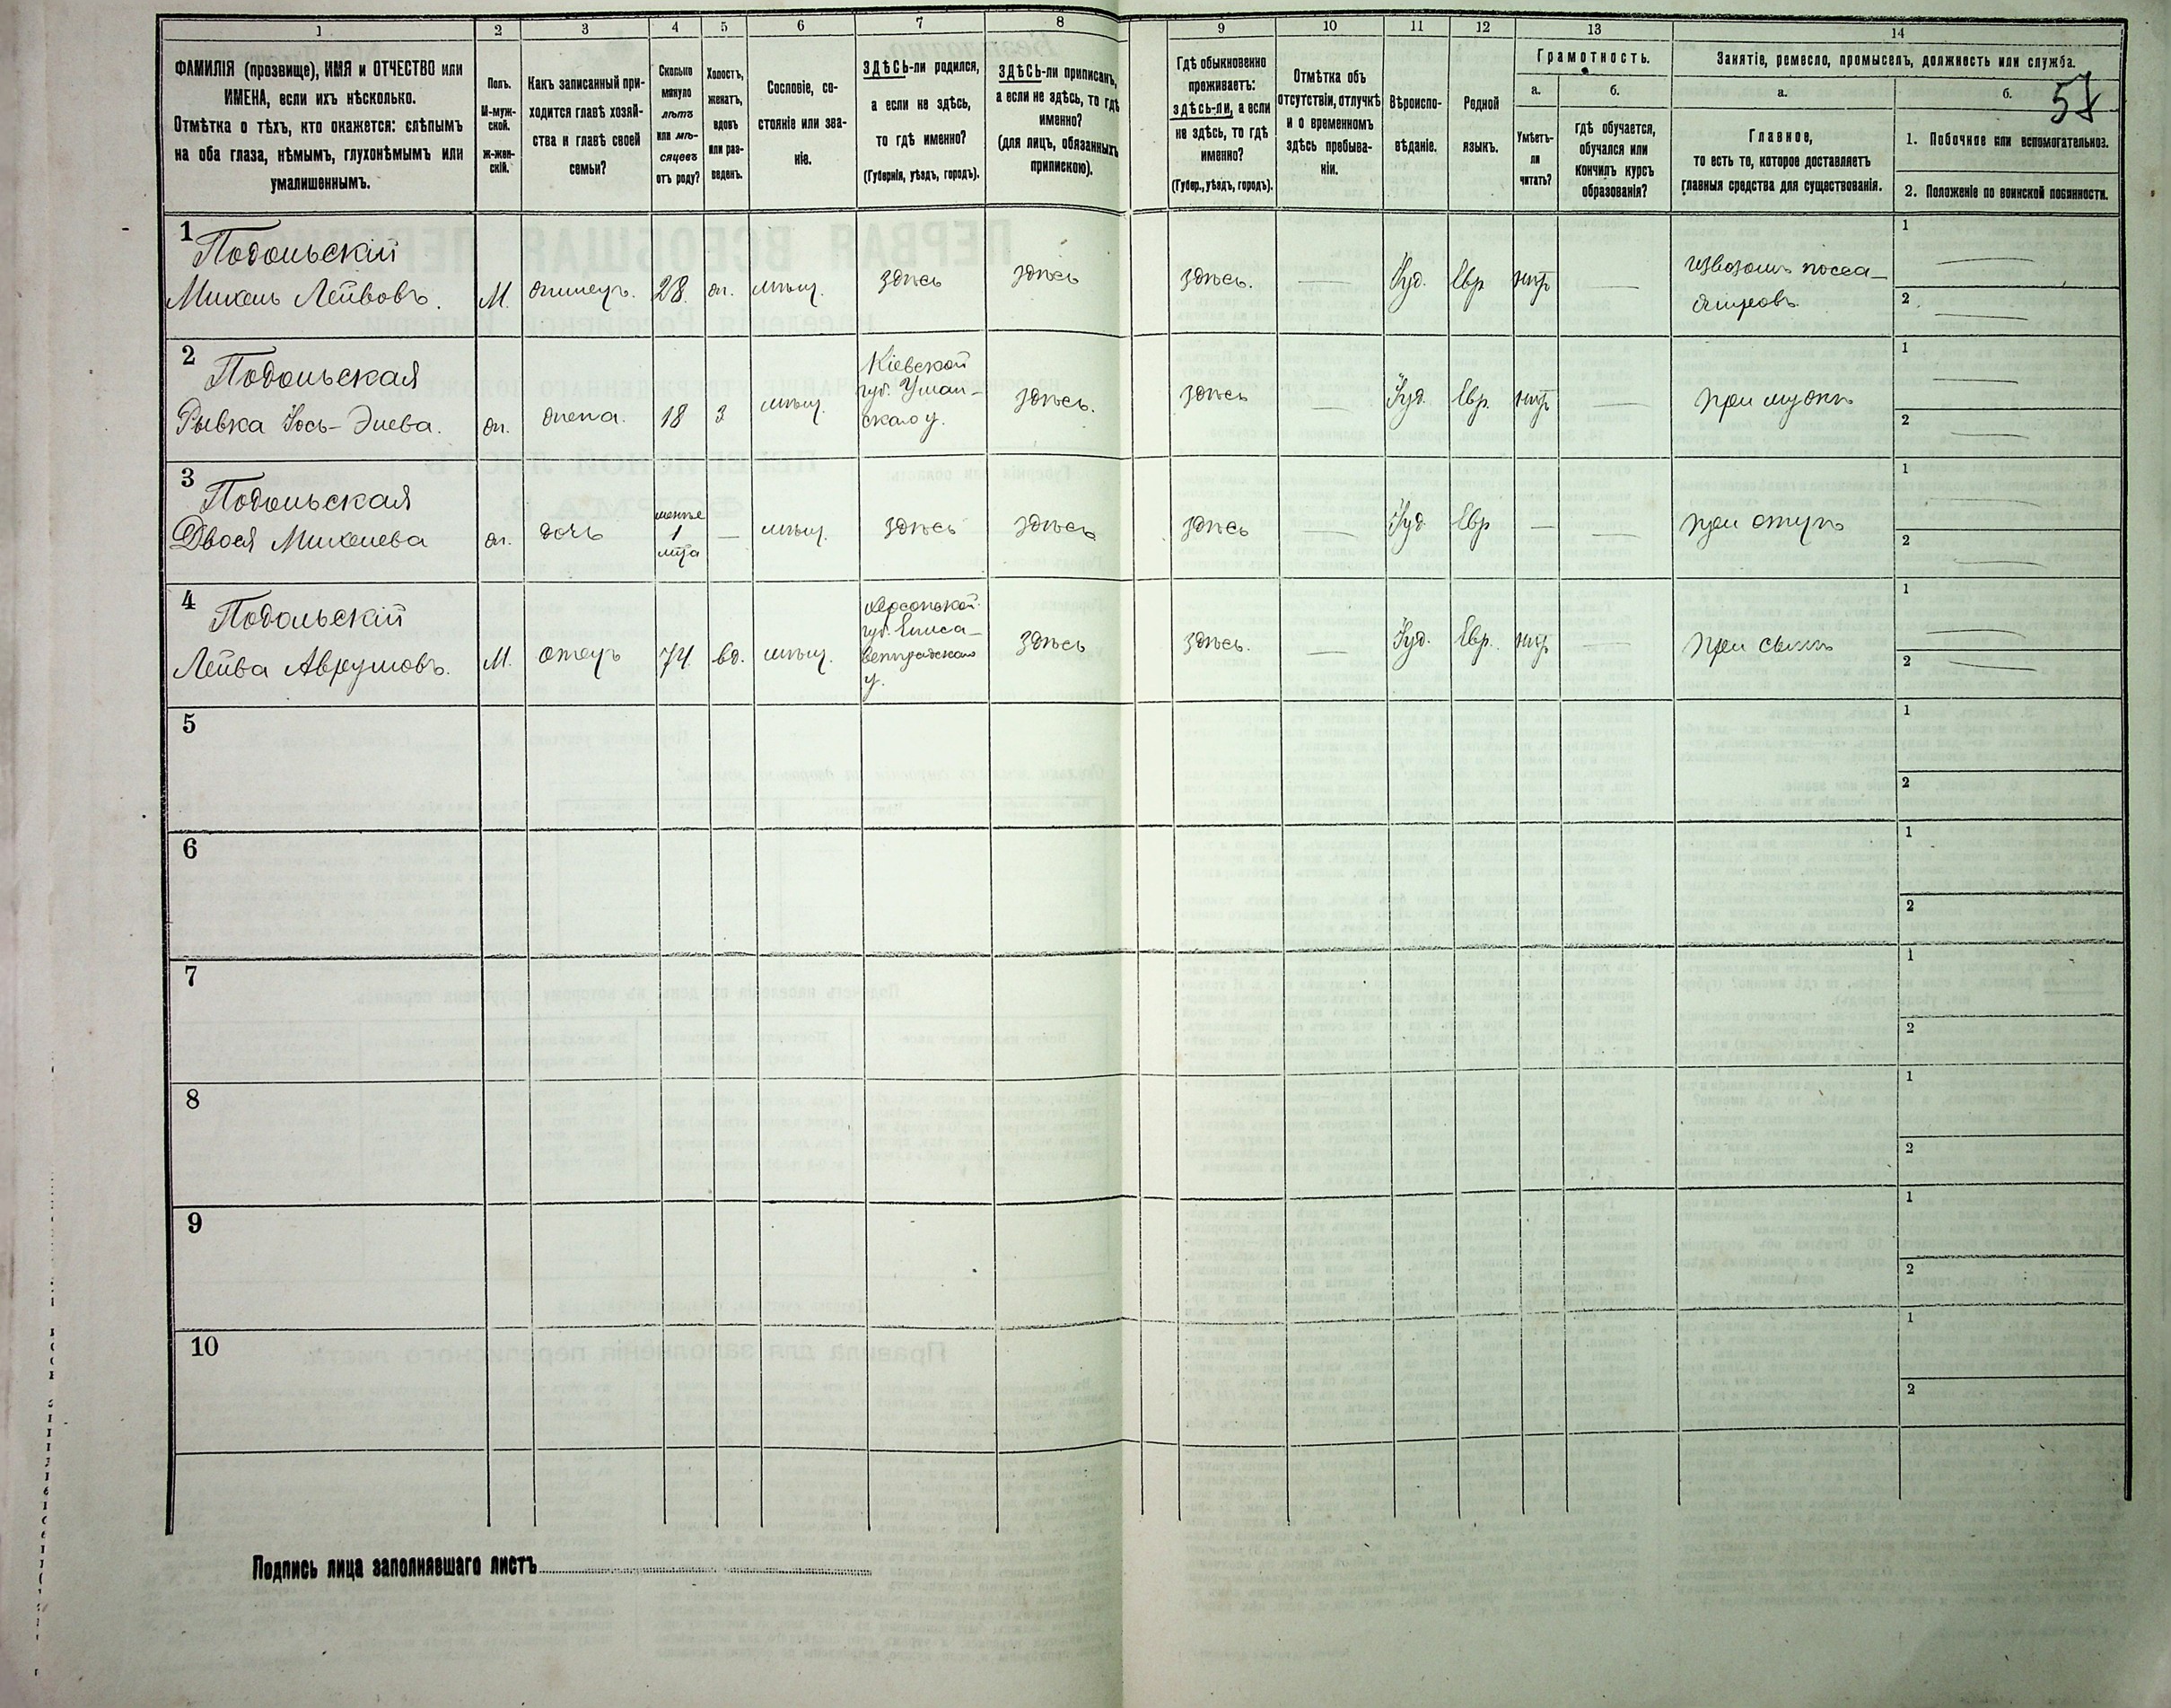 1 2 3 4 5 6 7 8 9 10 11 12 13 14
ФАМИЛІЯ (прозвище), ИМЯ и ОТЧЕСТВО или
ИМЕНА, если ихъ нѣсколько.
Отмѣтка о тѣхъ, кто окажется: слѣпымъ
на оба глаза, нѣмымъ, глухонѣмымъ или
умалишеннымъ.
Полъ.
М-муж-
ской.
Ж-жен-
скій.
Какъ записанный при-
ходится главѣ хозяй-
ства и главѣ своей
семьи?
Сколько
минуло
лѣтъ
или мѣ-
сяцевъ
отъ роду?
Холостъ,
женатъ,
вдовъ
или раз-
веденъ.
Сословіе, со-
стояніе или зва-
ніе.
ЗДѢСЬ-ли родился,
а если не здѣсь,
то гдѣ именно?
(Губернія, уѣздъ, городъ).
ЗДѢСЬ-ли приписанъ,
а если не здѣсь, то гдѣ
именно?
(для лицъ, обязанныхъ
припискою).
Гдѣ обыкновенно
проживаетъ:
здѣсь-ли, а если
не здѣсь, то гдѣ
именно?
(Губер., уѣздъ, городъ).
Отмѣтка объ
отсутствіи, отлучкѣ
и о временномъ
здѣсь пребыва-
ніи.
Вѣроиспо-
вѣданіе.
Родной
языкъ.
Грамотность.
а.
Умѣетъ-
ли
читать?
б.
гдѣ обучается,
обучался или
кончилъ курсъ
образованія?
Занятіе, ремесло, промыселъ, должность или служба.
а.
Главное,
то есть то, которое доставляетъ
главныя средства для существованія.
б.
57
1. Побочное или вспомогательное.
2. Положеніе по воинской повинности.
1 Подольскій
Михель Лейбовъ. М. 28. мѣщ. здѣсь здѣсь здѣсь. — Іуд. Евр нѣтъ — извозомъ пасса-
жировъ
1 —
2 —
2 Подольская
Рывка Іось- жена. 18 З мѣщ.
Кіевской
губ. Уман-
скаго у.
здѣсь. здѣсь — Іуд. Евр. нѣтъ — при мужѣ
1 —
2 —
3 Подольская
Двося Михелева дочь
менѣе
1
лѣта
— мѣщ. здѣсь здѣсь здѣсь — Іуд Евр — — при отцѣ
1 —
2 —
4 Подольскій
Лейба Аврумовъ. М. отецъ 74. вд. мѣщ.
Херсонской
губ. Елиса-
ветградскаго
у.
здѣсь здѣсь. — Іуд. Евр. нѣтъ — при сынѣ
1 —
2 —
5
1
2
6
1
2
7
1
2
8
1
2
9
1
2
10
1
2
Подпись лица заполнявшаго листъ